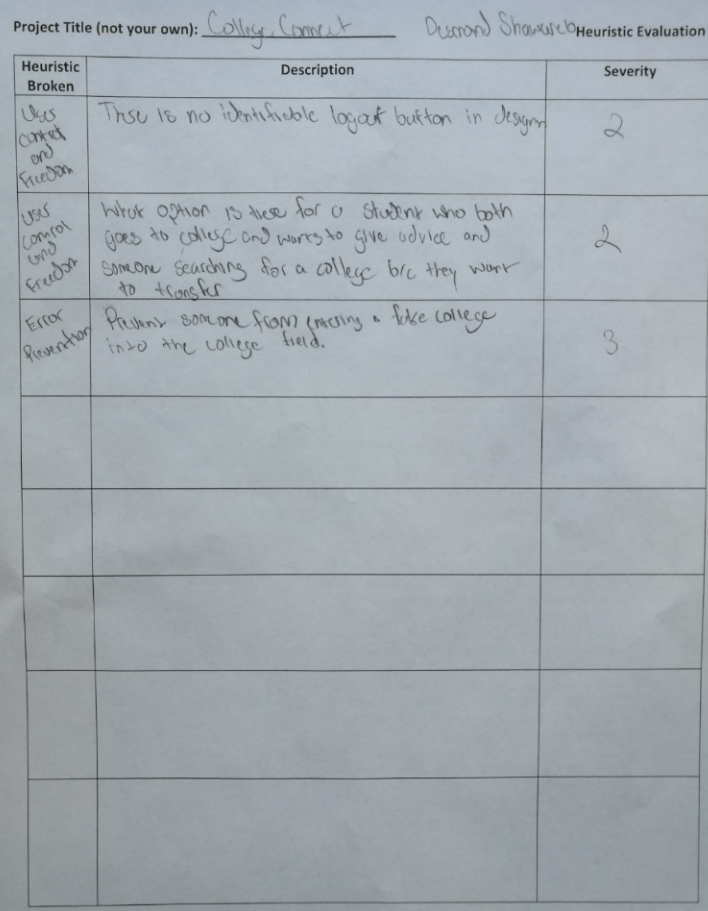 Project Title (not your own): College Connect Desmond Heuristic Evaluation
Heuristic Broken Description Severity
User control and Freedom
There is no identifiable logout button in design
2
User control and Freedom
What option is there for a student who both
goes to college and wants to give advice and
someone searching for a college b/c they want
to transfer
2
Error Prevention
Prevent someone from entering a fake college
into the college field.
3